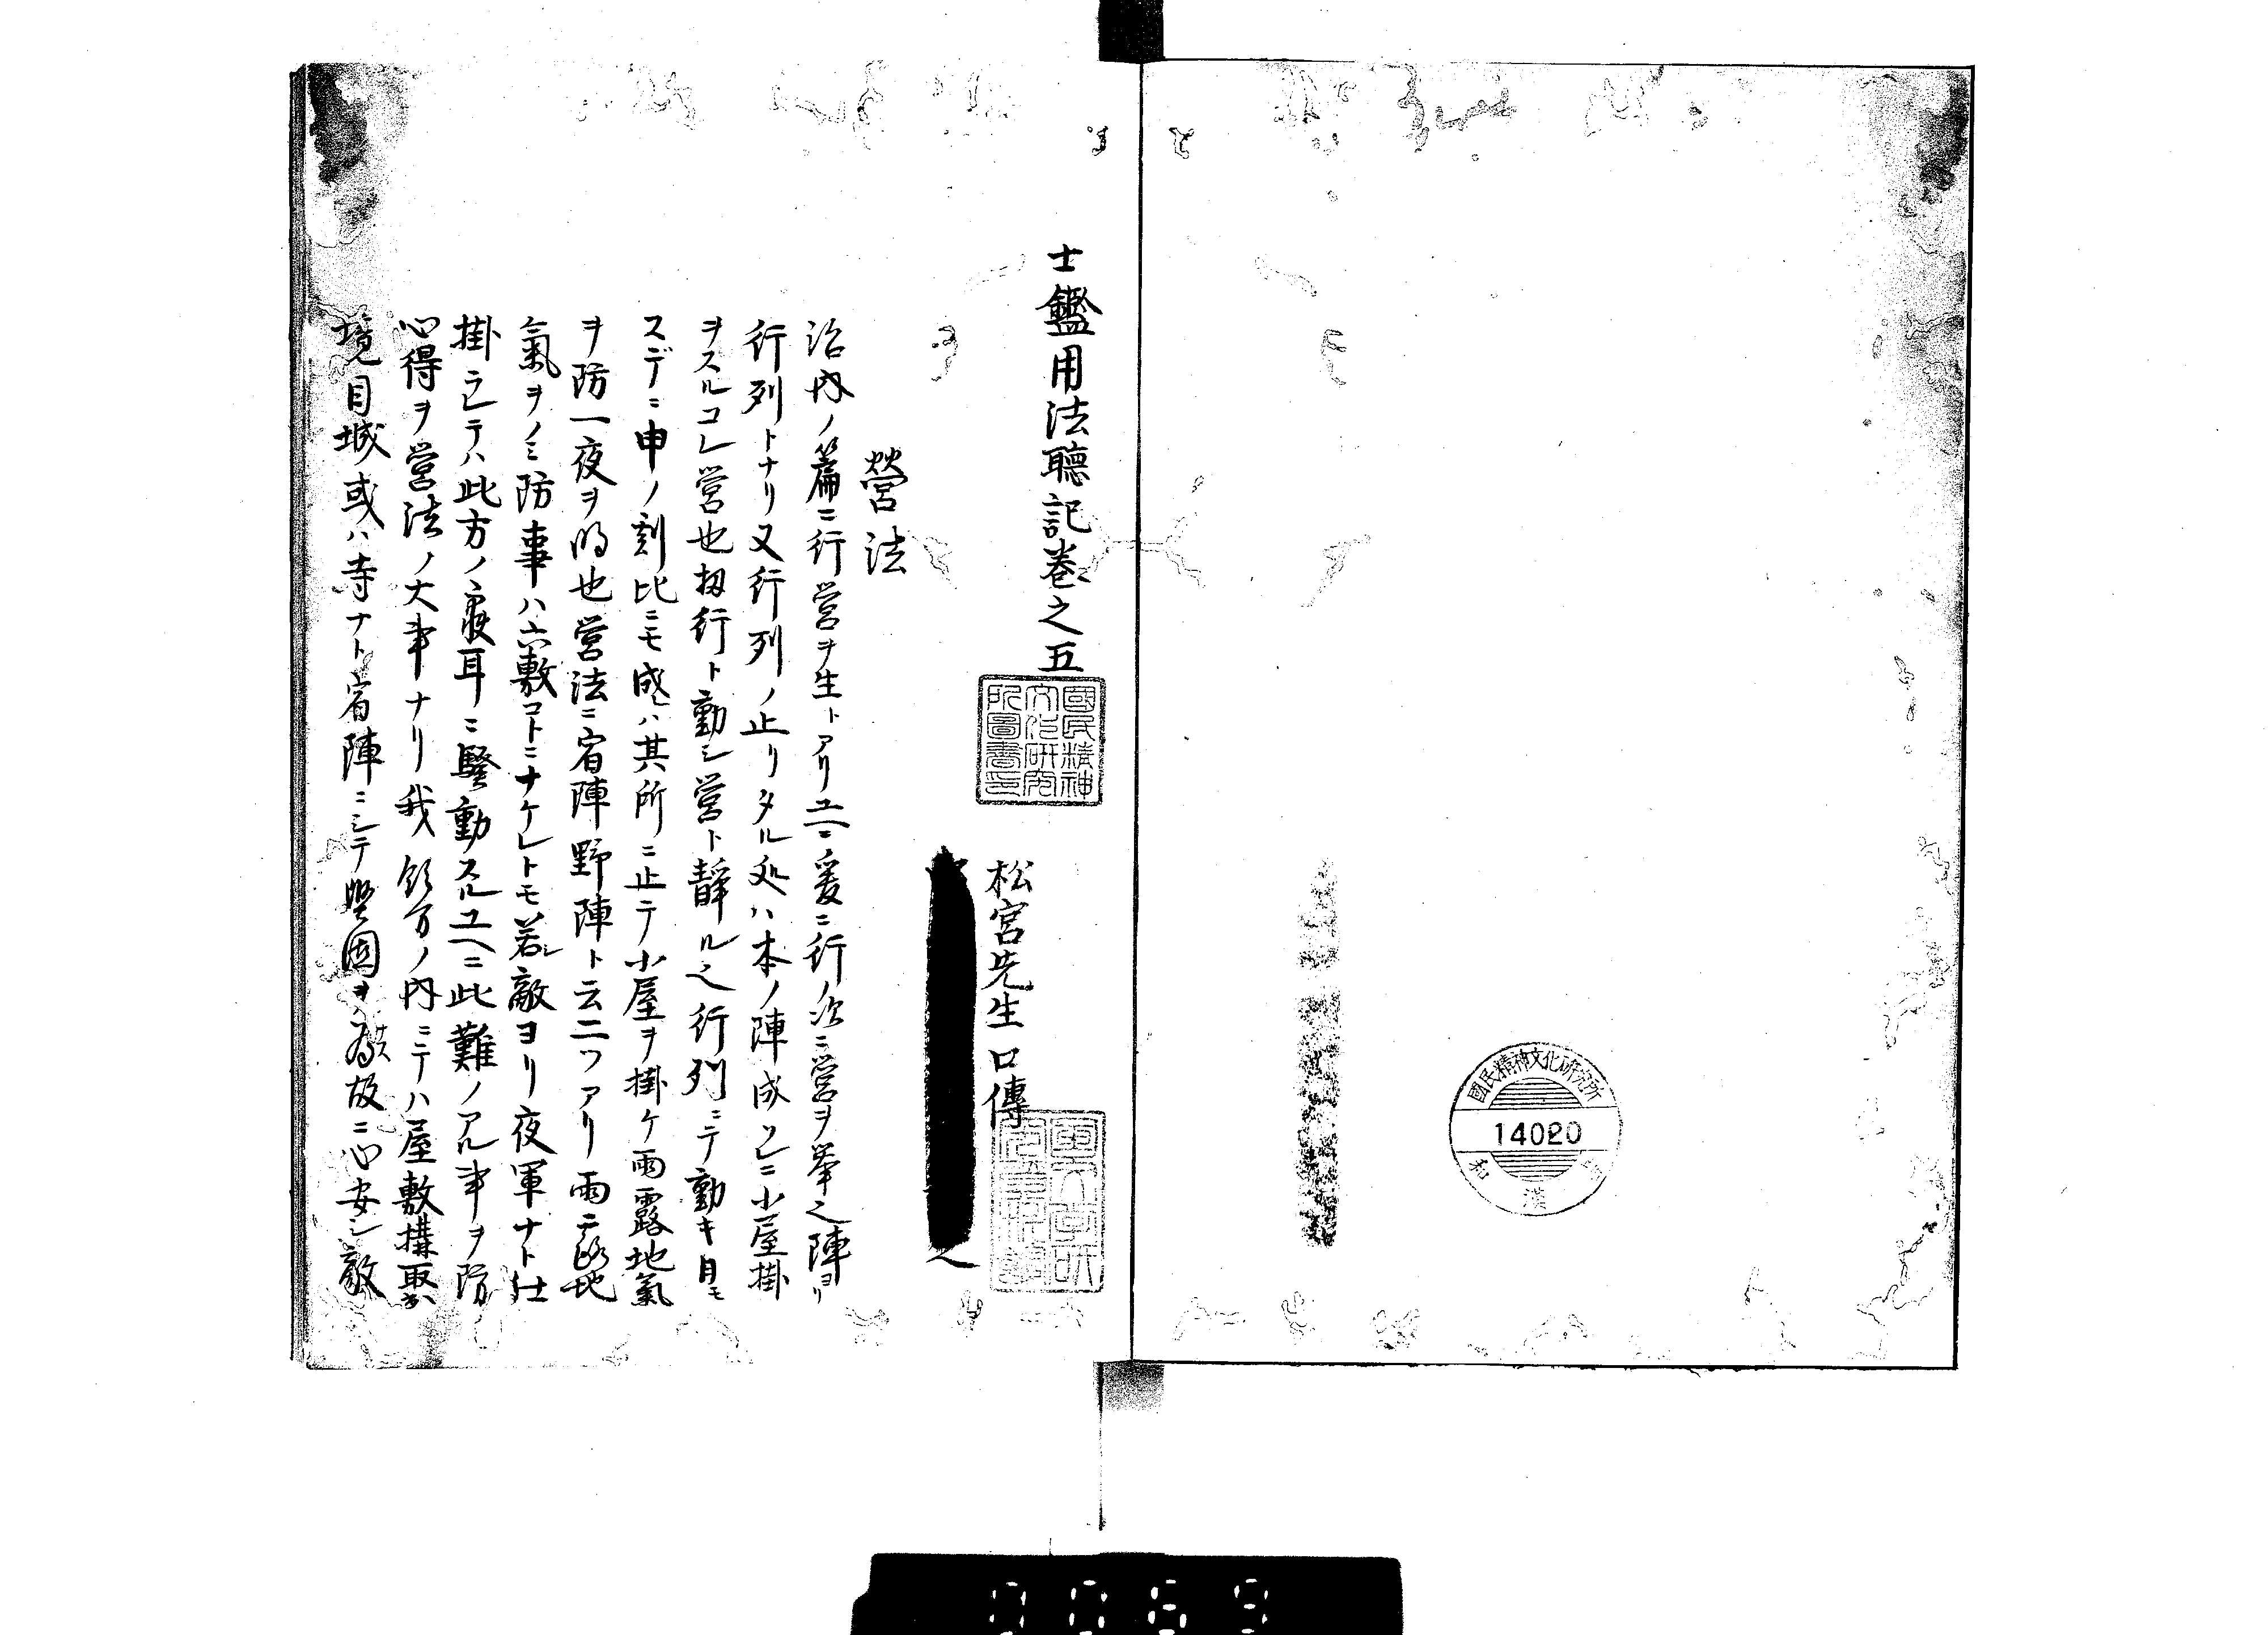 國民精神文化研究所
14020
和漢
士鑑用法聴記巻之五
國民精神
文化研究
所圖書印
松宮先生口傳
營法
治内ノ篇ニ行營ヲ生トアリユヘニ爰ニ行ノ次ニ營ヲ挙之陣ヨリ
行列トナリ又行列ノ止リタル処ハ本ノ陣成ソレニ小屋掛
ヲスルコレ營也扨行ト動シ營ト静ル之行列ニテ動キ日モ
スデニ申ノ刻比ニモ成ハ其所ニ止テ小屋ヲ掛ケ雨露地氣
ヲ防一夜ヲ明也営法ニ宿陣野陣ト云二ツアリ雨露地
氣ヲノミ防事ハ六敷コトニナケレトモ若シ敵ヨリ夜軍ナト仕
掛ラレテハ此方ノ寢耳ニ騒動スルユヘニ此難ノアル事ヲ防
心得ヲ営法ノ大事ナリ我領分ノ内ニテハ屋敷構聚
境目城或ハ寺ナト宿陣ニシテ堅固ヲ故ニ心安シ敵